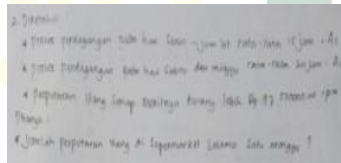 2. Diketahui :
• proses perdagangan satu hari Senin - Jum'at rata-rata 15 jam.
• proses perdagangan satu hari Sabtu dan minggu rata-rata 20 jam.
• perputaran Uang Setiap kurang lebih Rp 42
• Jumlah perputaran Uang di Supermarket Selama Satu minggu ?